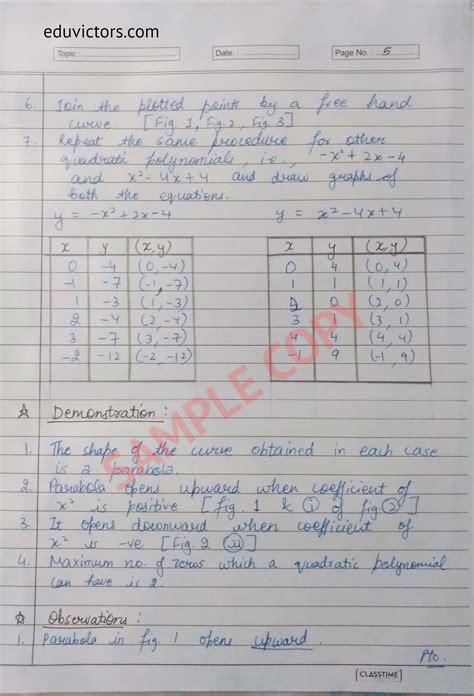 eduvictors.com
Topic : Date. : Page No. : 5
6. Join the plotted points by a free hand
curve. [Fig. 1, Fig. 2, Fig. 3]
7. Repeat the same procedure for other
quadratic polynomials, i.e., -x² + 2x - 4
and x² - 4x + 4 and draw graphs of
both the equations.
y = -x² + 2x - 4 y = x² - 4x + 4
x y (x, y) x y (x, y)
0 -4 (0, -4) 0 4 (0, 4)
-1 -7 (-1, -7) 1 1 (1, 1)
1 -3 (1, -3) 2 0 (2, 0)
2 -4 (2, -4) 3 1 (3, 1)
3 -7 (3, -7) 4 4 (4, 4)
-2 -12 (-2, -12) -1 9 (-1, 9)
SAMPLE COPY
☆ Demonstration :
1. The shape of the curve obtained in each case
is a parabola.
2. Parabola opens upward when coefficient of
x² is positive [fig. 1 & (i) of fig. (2)]
3. It opens downward when coefficient of
x² is -ve [Fig 2 (ii)]
4. Maximum no. of zeros which a quadratic polynomial
can have is 2.
☆ Observations :
1. Parabola in fig. 1 opens upward.
Pto.
CLASSTIME